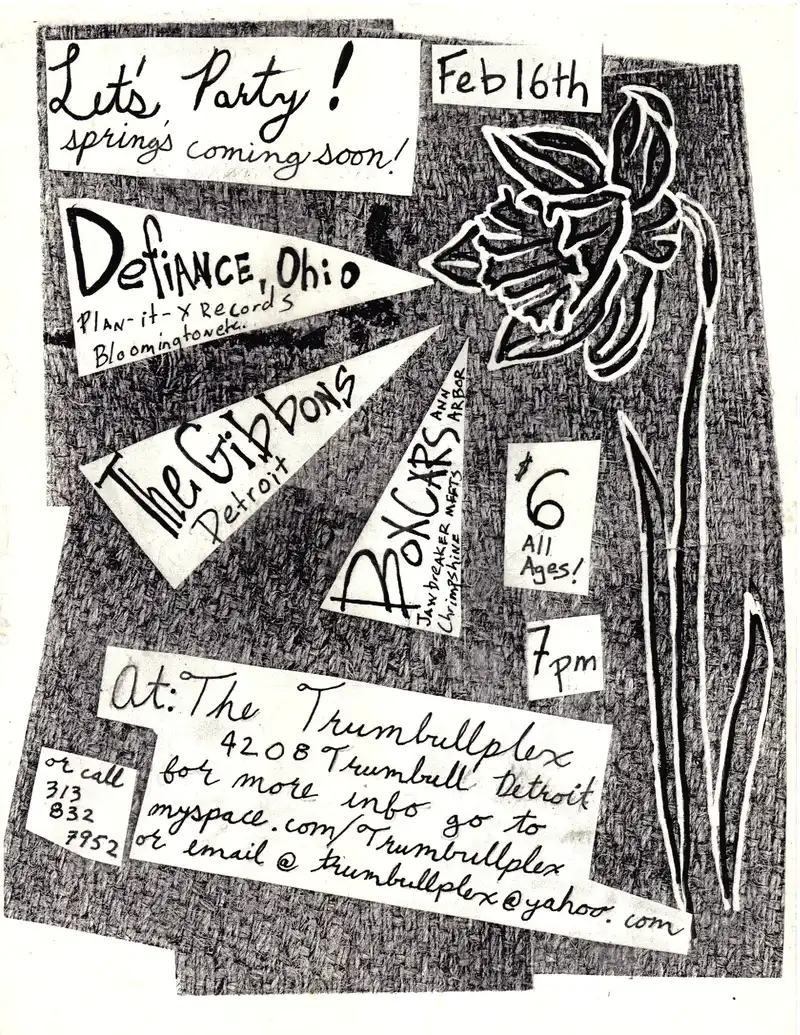 Let's Party!
spring's coming soon!
Feb 16th
Defiance, Ohio
Plan-it-X Records
Bloomington etc.
The Gibbons
Detroit
BOXCARS
ANN
ARBOR
Jawbreaker meets
Chrimpshrine
$6
All
Ages!
7pm
At: The Trumbullplex
4208 Trumbull Detroit
for more info go to
myspace.com/Trumbullplex
or email @ trumbullplex@yahoo.com
or call
313
832
7952